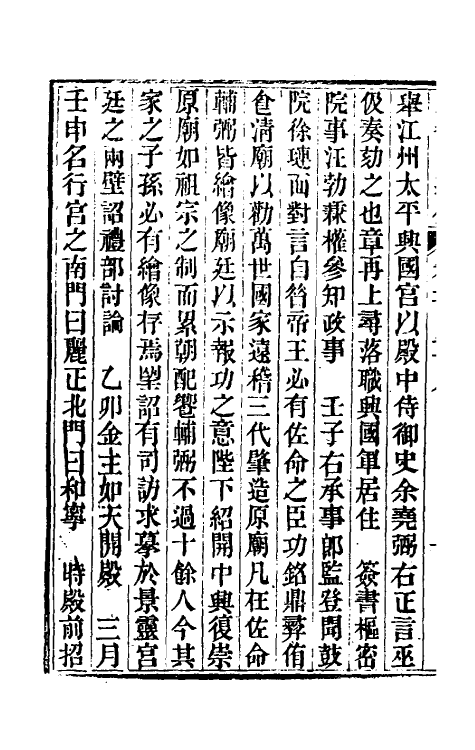 舉江州太平興國宮以殿中侍御史余堯弼右正言巫
伋奏劾之也章再上尋落職興國軍居住　簽書樞密
院事汪勃兼權參知政事　壬子右承事郎監登聞鼓
院徐璉面對言自昝帝王必有佐命之臣功銘鼎彞侑
食清廟以勸萬世國家遠稽三代肇造原廟凡在佐命
輔弼皆繪像廟廷以示報功之意陛下紹開中興復崇
原廟如祖宗之制而累朝配饗輔弼不過十餘人今其
家之子孫必有繪像存焉望詔有司訪求摹於景靈宮
廷之兩壁詔禮部討論　乙卯金主如天開殿　三月
壬申名行宮之南門曰麗正北門曰和寧　時殿前招